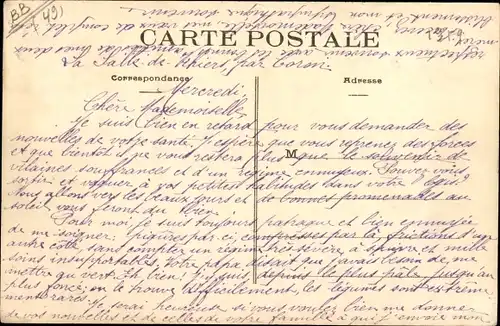 BB
(49)
CARTE POSTALE
La Salle de Vihiers par Coron
Correspondance
Adresse
Mercredi,
Chère Mademoiselle,
Je suis bien en retard pour vous demander des
nouvelles de votre santé. J'espère que vous reprenez des forces
et que bientôt il ne vous restera plus que le souvenir de
M
vilaines souffrances et d'un régime ennuyeux. Pouvez-vous
sortir et vaquer à vos petites habitudes dans votre logis?
Nous allons vers les beaux jours et de bonnes promenades au
soleil vous feront du bien.
Pour moi, je suis toujours patraque et bien ennuyée
de me soigner; figurez-vous: compresses par là, frictions d'un
autre côté, sans compter un régime très sévère à suivre et mille
soins insupportables. Votre papa disait que j'avais besoin de me
mettre au vert. Eh bien! J'y suis, depuis le plus pâle jusqu'au
plus foncé; en le trouve difficilement, les légumes sont extrême-
ment rares. Je serai heureuse si vous voulez bien me donner
de vos nouvelles et de celles de votre famille à qui j'envoie mon